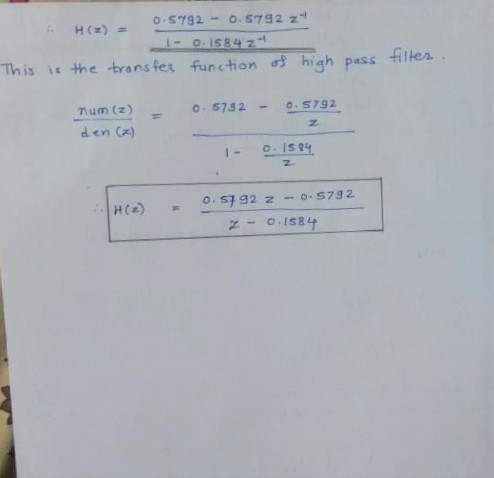 ∴ H(z) = 0.5792 - 0.5792 z⁻¹ / 1 - 0.1584 z⁻¹
This is the transfer function of high pass filter.
num(z) / den(z) = 0.5792 - 0.5792/z / 1 - 0.1584/z
∴ H(z) = 0.5792 z - 0.5792 / z - 0.1584